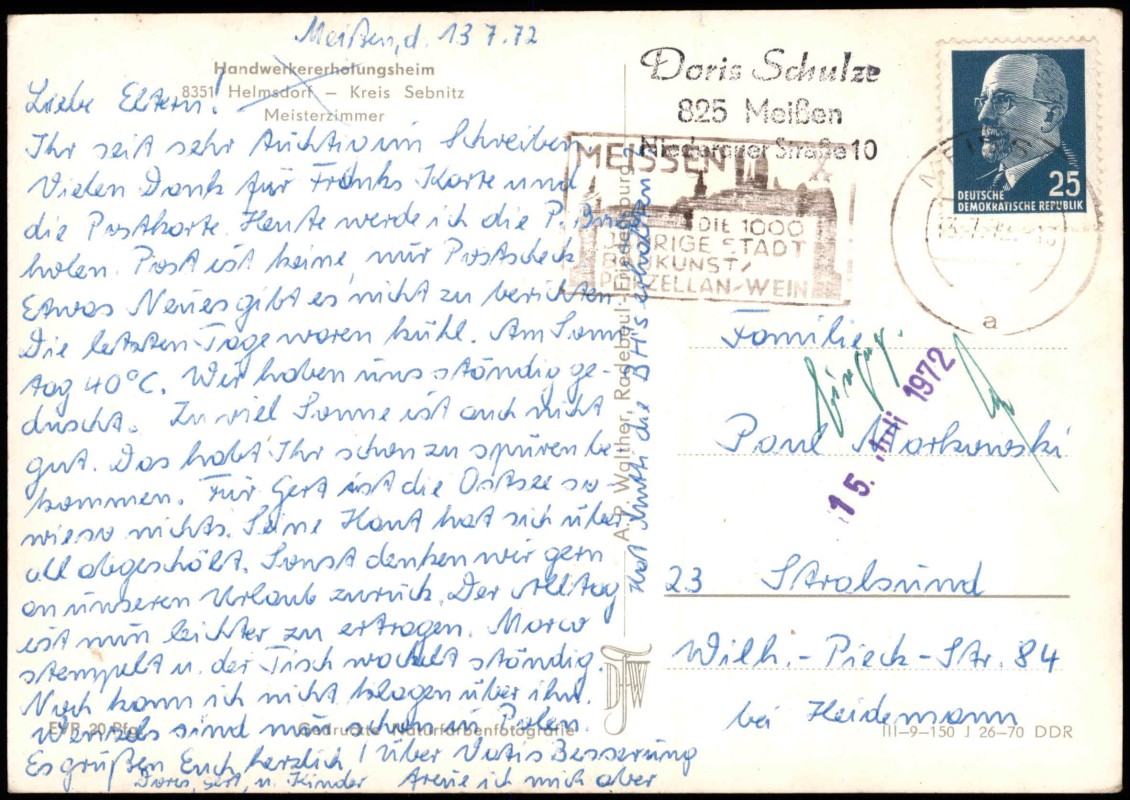 Meißen, d. 13 7.72
Handwerkererholungsheim
8351 Helmsdorf – Kreis Sebnitz
Meisterzimmer
Liebe Eltern!
Ihr seit sehr tüchtig im Schreiben
Vielen Dank für Franks Karte und
die Postkarte. Heute werde ich die P.
holen. Post ist keine, nur Postscheck
Etwas Neues gibt es nicht zu berichten.
Die letzten Tage waren kühl. Am Sonn
tag 40°C. Wir haben uns ständig ge-
duscht. Zu viel Sonne ist auch nicht
gut. Das habt Ihr schon zu spüren be
kommen. Für Gert ist die Ostsee so
wieso nichts. Seine Haut hat sich über
all abgeschält. Sonst denken wir gern
an unseren Urlaub zurück. Der Alltag
ist nun leichter zu ertragen. Marco
stempelt u. der Tisch wackelt ständig.
Noch kann ich nicht klagen über ihn.
Wenzels sind nun schon in Polen.
Es grüßen Euch herzlich
Doris, Gert, u. Kinder
! Über Vatis Besserung
freue ich mich aber
Hat Mutti die BH's erhalten?
EVP 20 Pfg.
Gedruckte Naturfarbenfotografie
A.-P. Walther, Radebeul, Friedensburg
DFW
Doris Schulze
825 Meißen
Straße 10
MEISSEN
DIE 1000
JÄHRIGE STADT
BAUKUNST/
PORZELLAN-WEIN
MEISSEN
13.-7.72
a
DEUTSCHE
DEMOKRATISCHE REPUBLIK
25
Familie
Paul Markowski
15. Juli 1972
23 Stralsund
Wilh.-Pieck-Str. 84
bei Heidemann
III–9–150 J 26–70 DDR